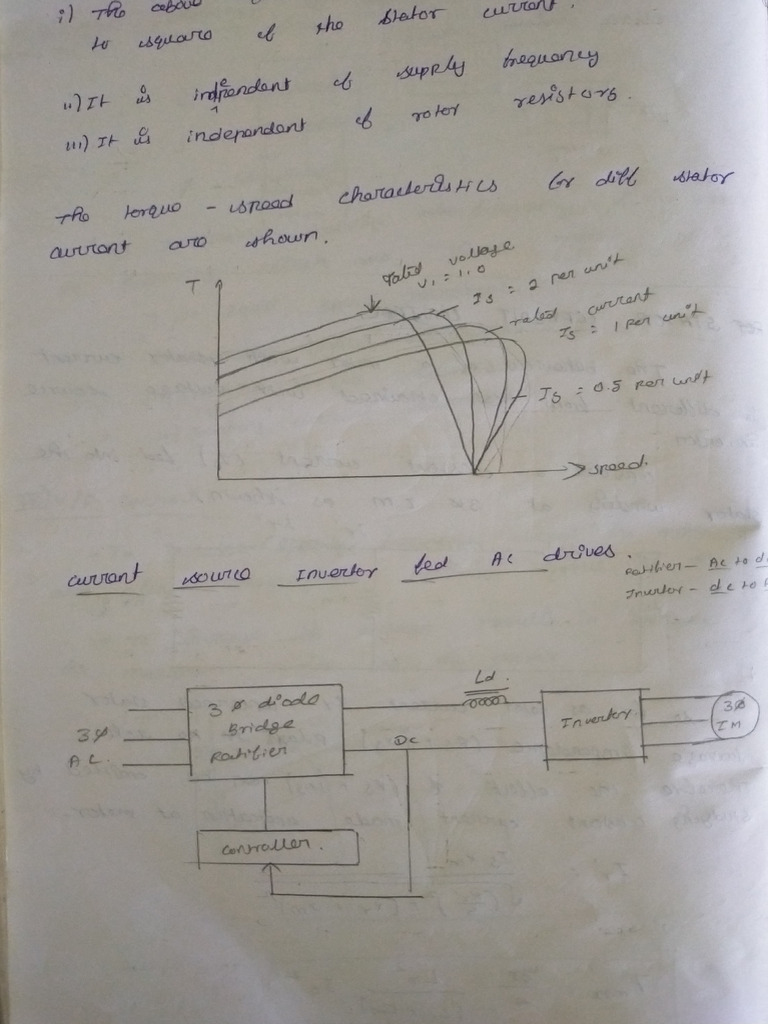 i) The above
to square of the stator current.
ii) It is indpendant of supply frequency
e
iii) It is independent of rotor resistors.
The torque - speed characteristics for diff stator
current are shown.
T
rated voltage
V1 = 1.0
Is = 2 per unit
rated current
Is = 1 per unit
Is = 0.5 per unit
speed.
current source Invertor fed Ac drives.
Rectifier - Ac to d
Invertor - dc to
Ld.
3φ diode
Bridge
Rectifier
3φ
AC.
Dc
Invertor
3φ
IM
controller.